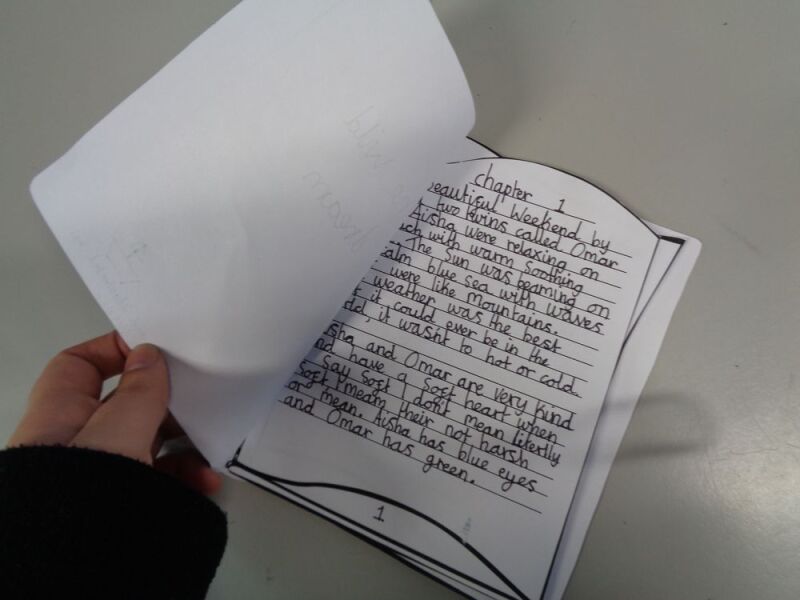 chapter 1
beautiful Weekend by
two twins called Omar
Aisha were relaxing on
with warm soothing
The Sun was beaming on
calm blue sea with waves
were like mountains.
weather was the best
it could ever be in the
it wasnt to hot or cold.
Aisha and Omar are very kind
and have a soft heart when
say soft I don't mean literly
soft I mean their not harsh
or mean. Aisha has blue eyes
and Omar has green.
1